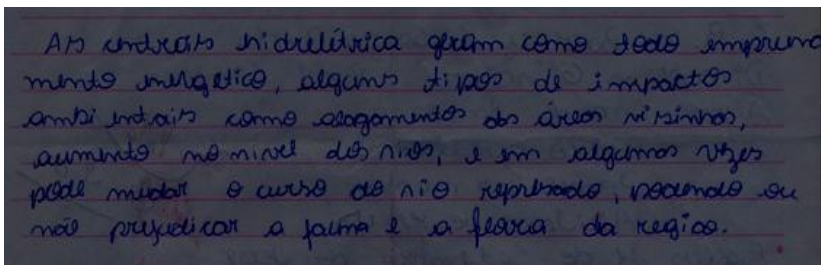 As centrais hidrelétrica geram como todo empreend
mento energético, alguns tipos de impactos
ambientais como alagamentos das áreas vizinhas,
aumento no nível dos rios, e em algumas vezes
pode mudar o curso do rio represado, podendo ou
não prejudicar a fauna e a flora da região.